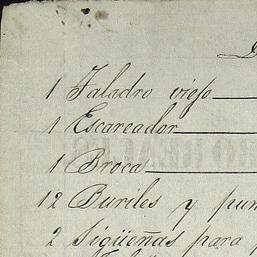 1 Taladro viejo
1 Escareador
1 Broca
12 Buriles y pun
2 Sigüeñas para